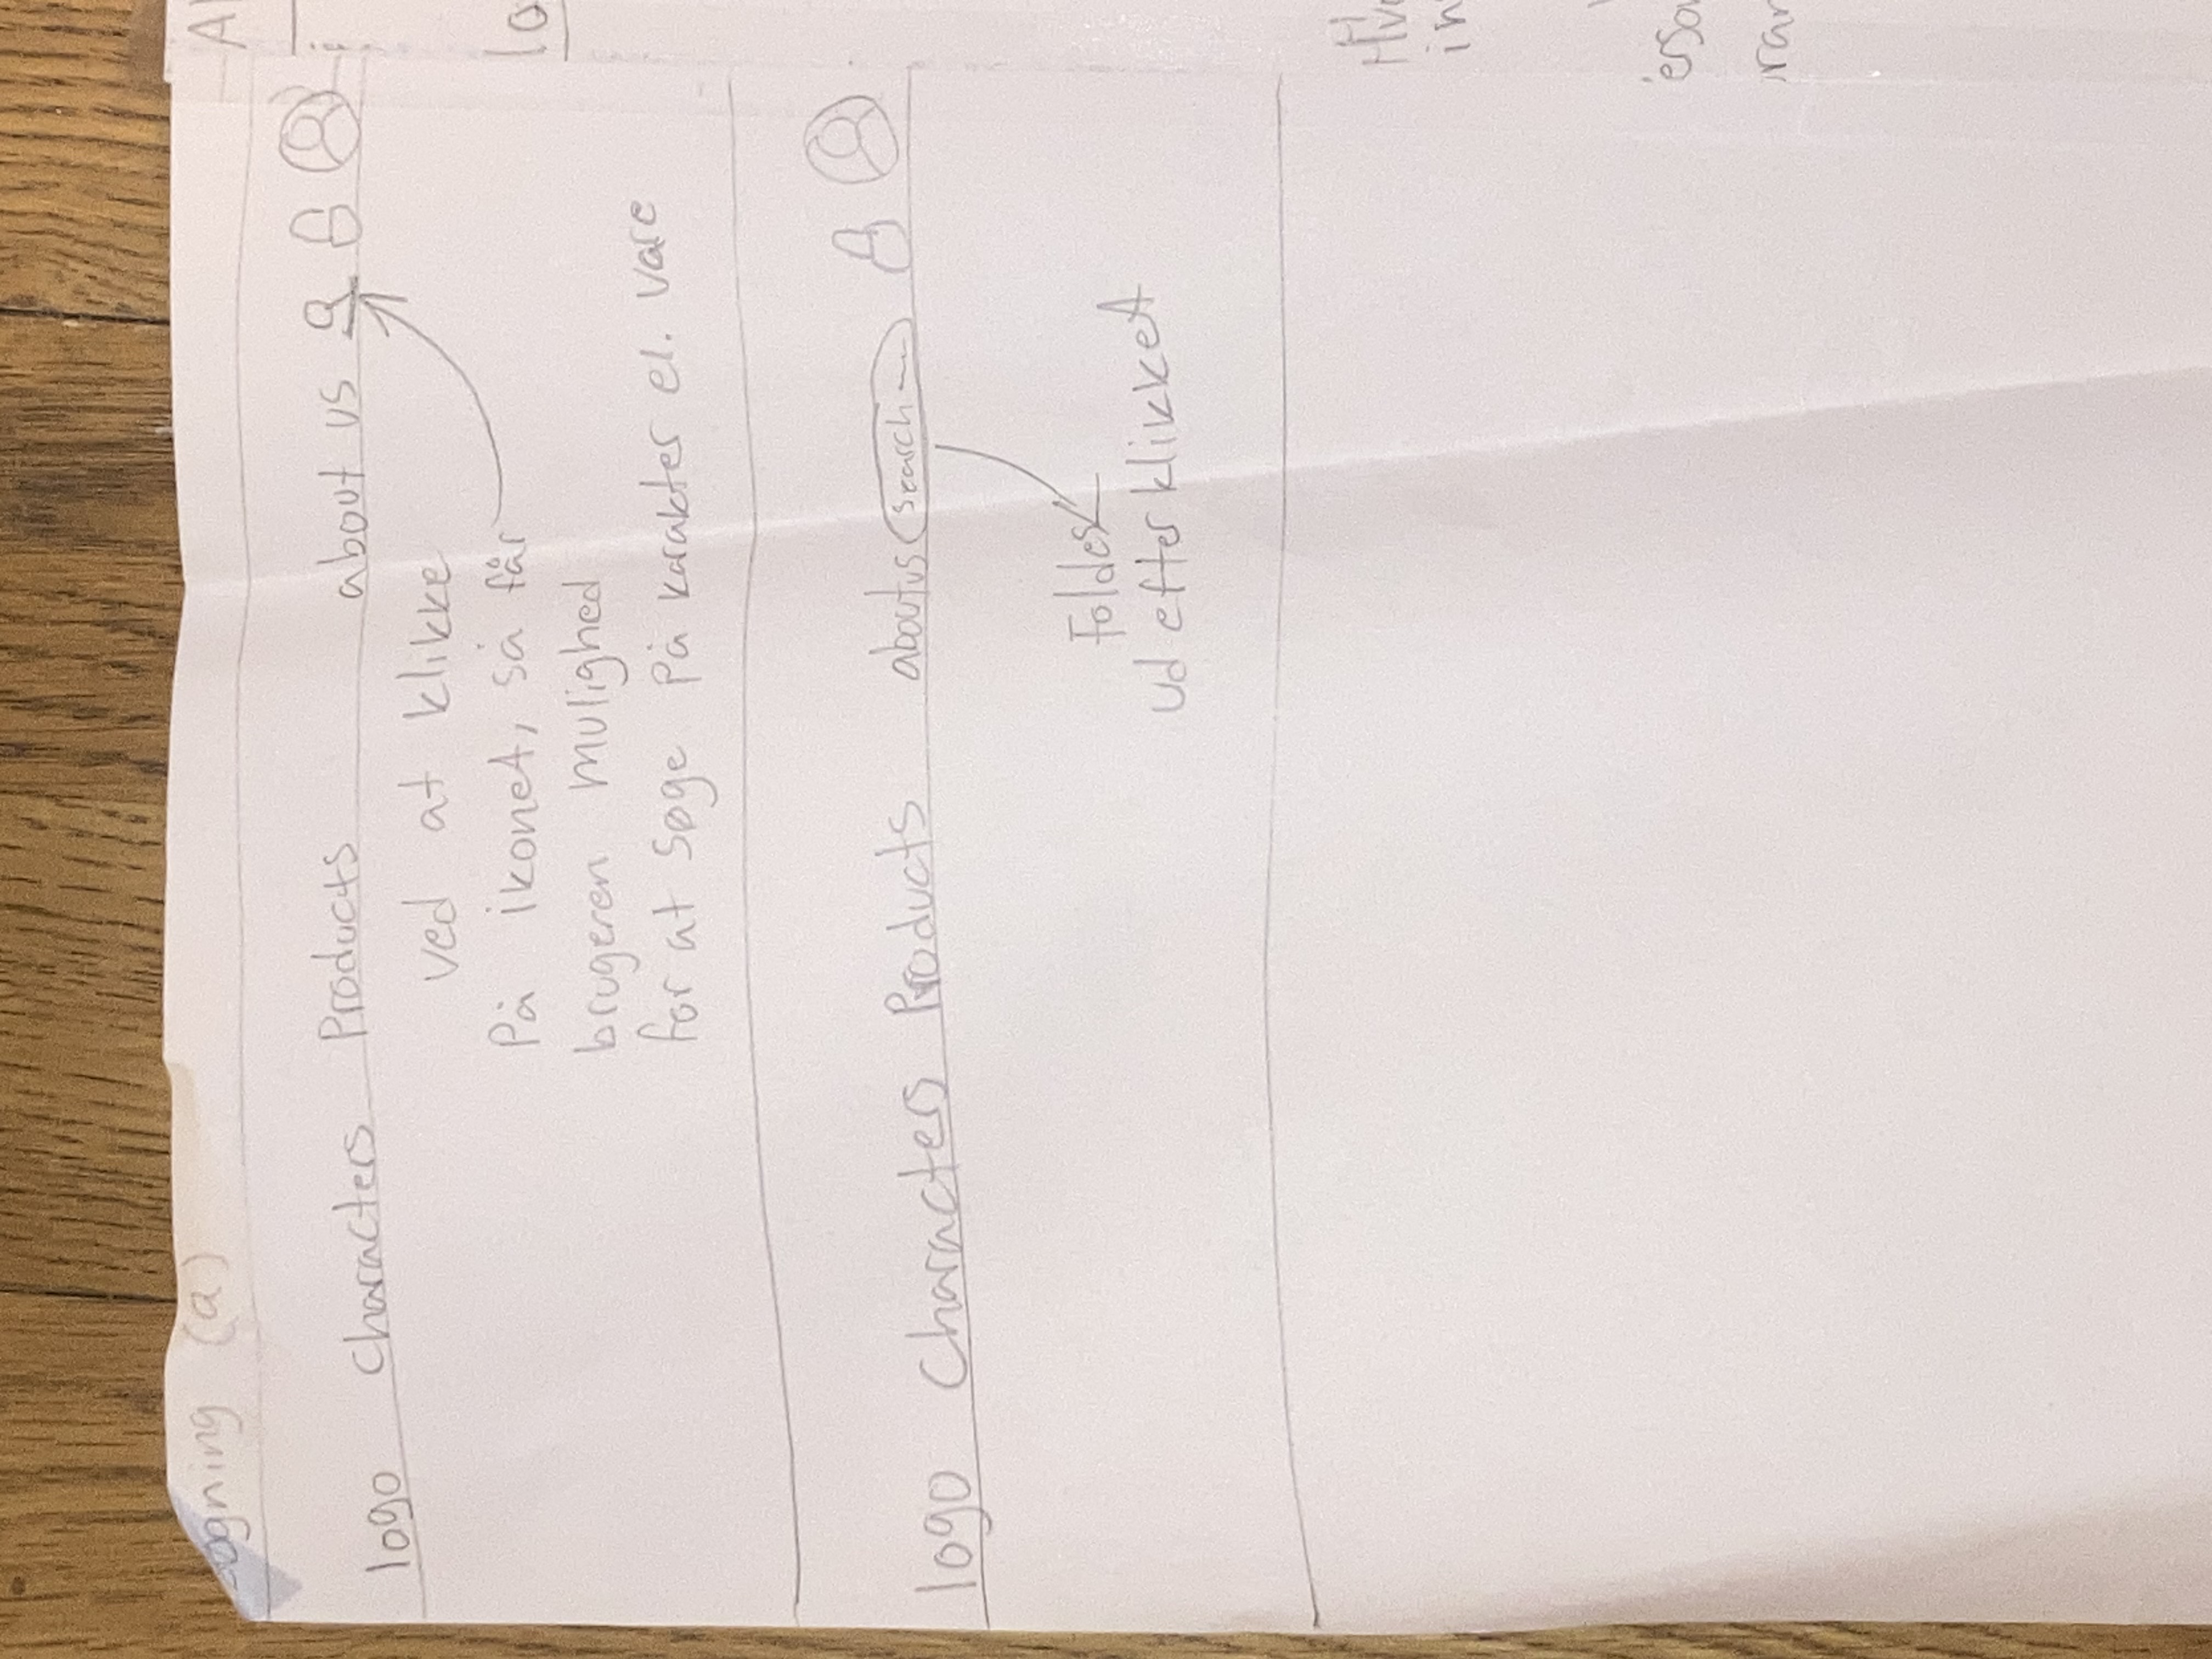 søgning (a)
logo Characters Products about us
ved at klikke
På ikonet, så får
brugeren mulighed
for at søge på karakter el. vare
logo Characters Products about us search
Foldes
ud efter klikket
Al
lo
Hv
in
erso
ran